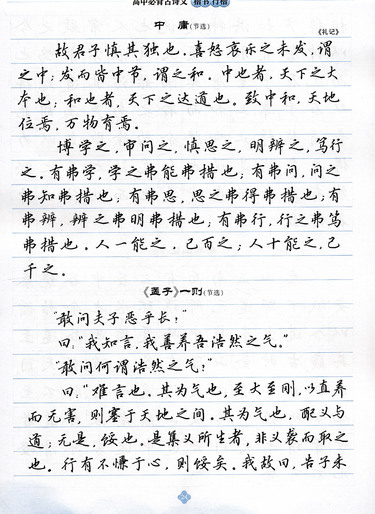 高中必背古诗文 楷书行楷
中 庸(节选)
《礼记》
故君子慎其独也。喜怒哀乐之未发,谓
之中;发而皆中节,谓之和。中也者,天下之大
本也;和也者,天下之达道也。致中和,天地
位焉,万物育焉。
博学之,审问之,慎思之,明辨之,笃行
之。有弗学,学之弗能弗措也;有弗问,问之
弗知弗措也;有弗思,思之弗得弗措也;有
弗辨,辨之弗明弗措也;有弗行,行之弗笃
弗措也。人一能之,己百之;人十能之,己
千之。
《孟子》一则(节选)
“敢问夫子恶乎长?”
曰:“我知言,我善养吾浩然之气。”
“敢问何谓浩然之气?”
曰:“难言也。其为气也,至大至刚,以直养
而无害,则塞于天地之间。其为气也,配义与
道;无是,馁也。是集义所生者,非义袭而取之
也。行有不慊于心,则馁矣。我故曰,告子未